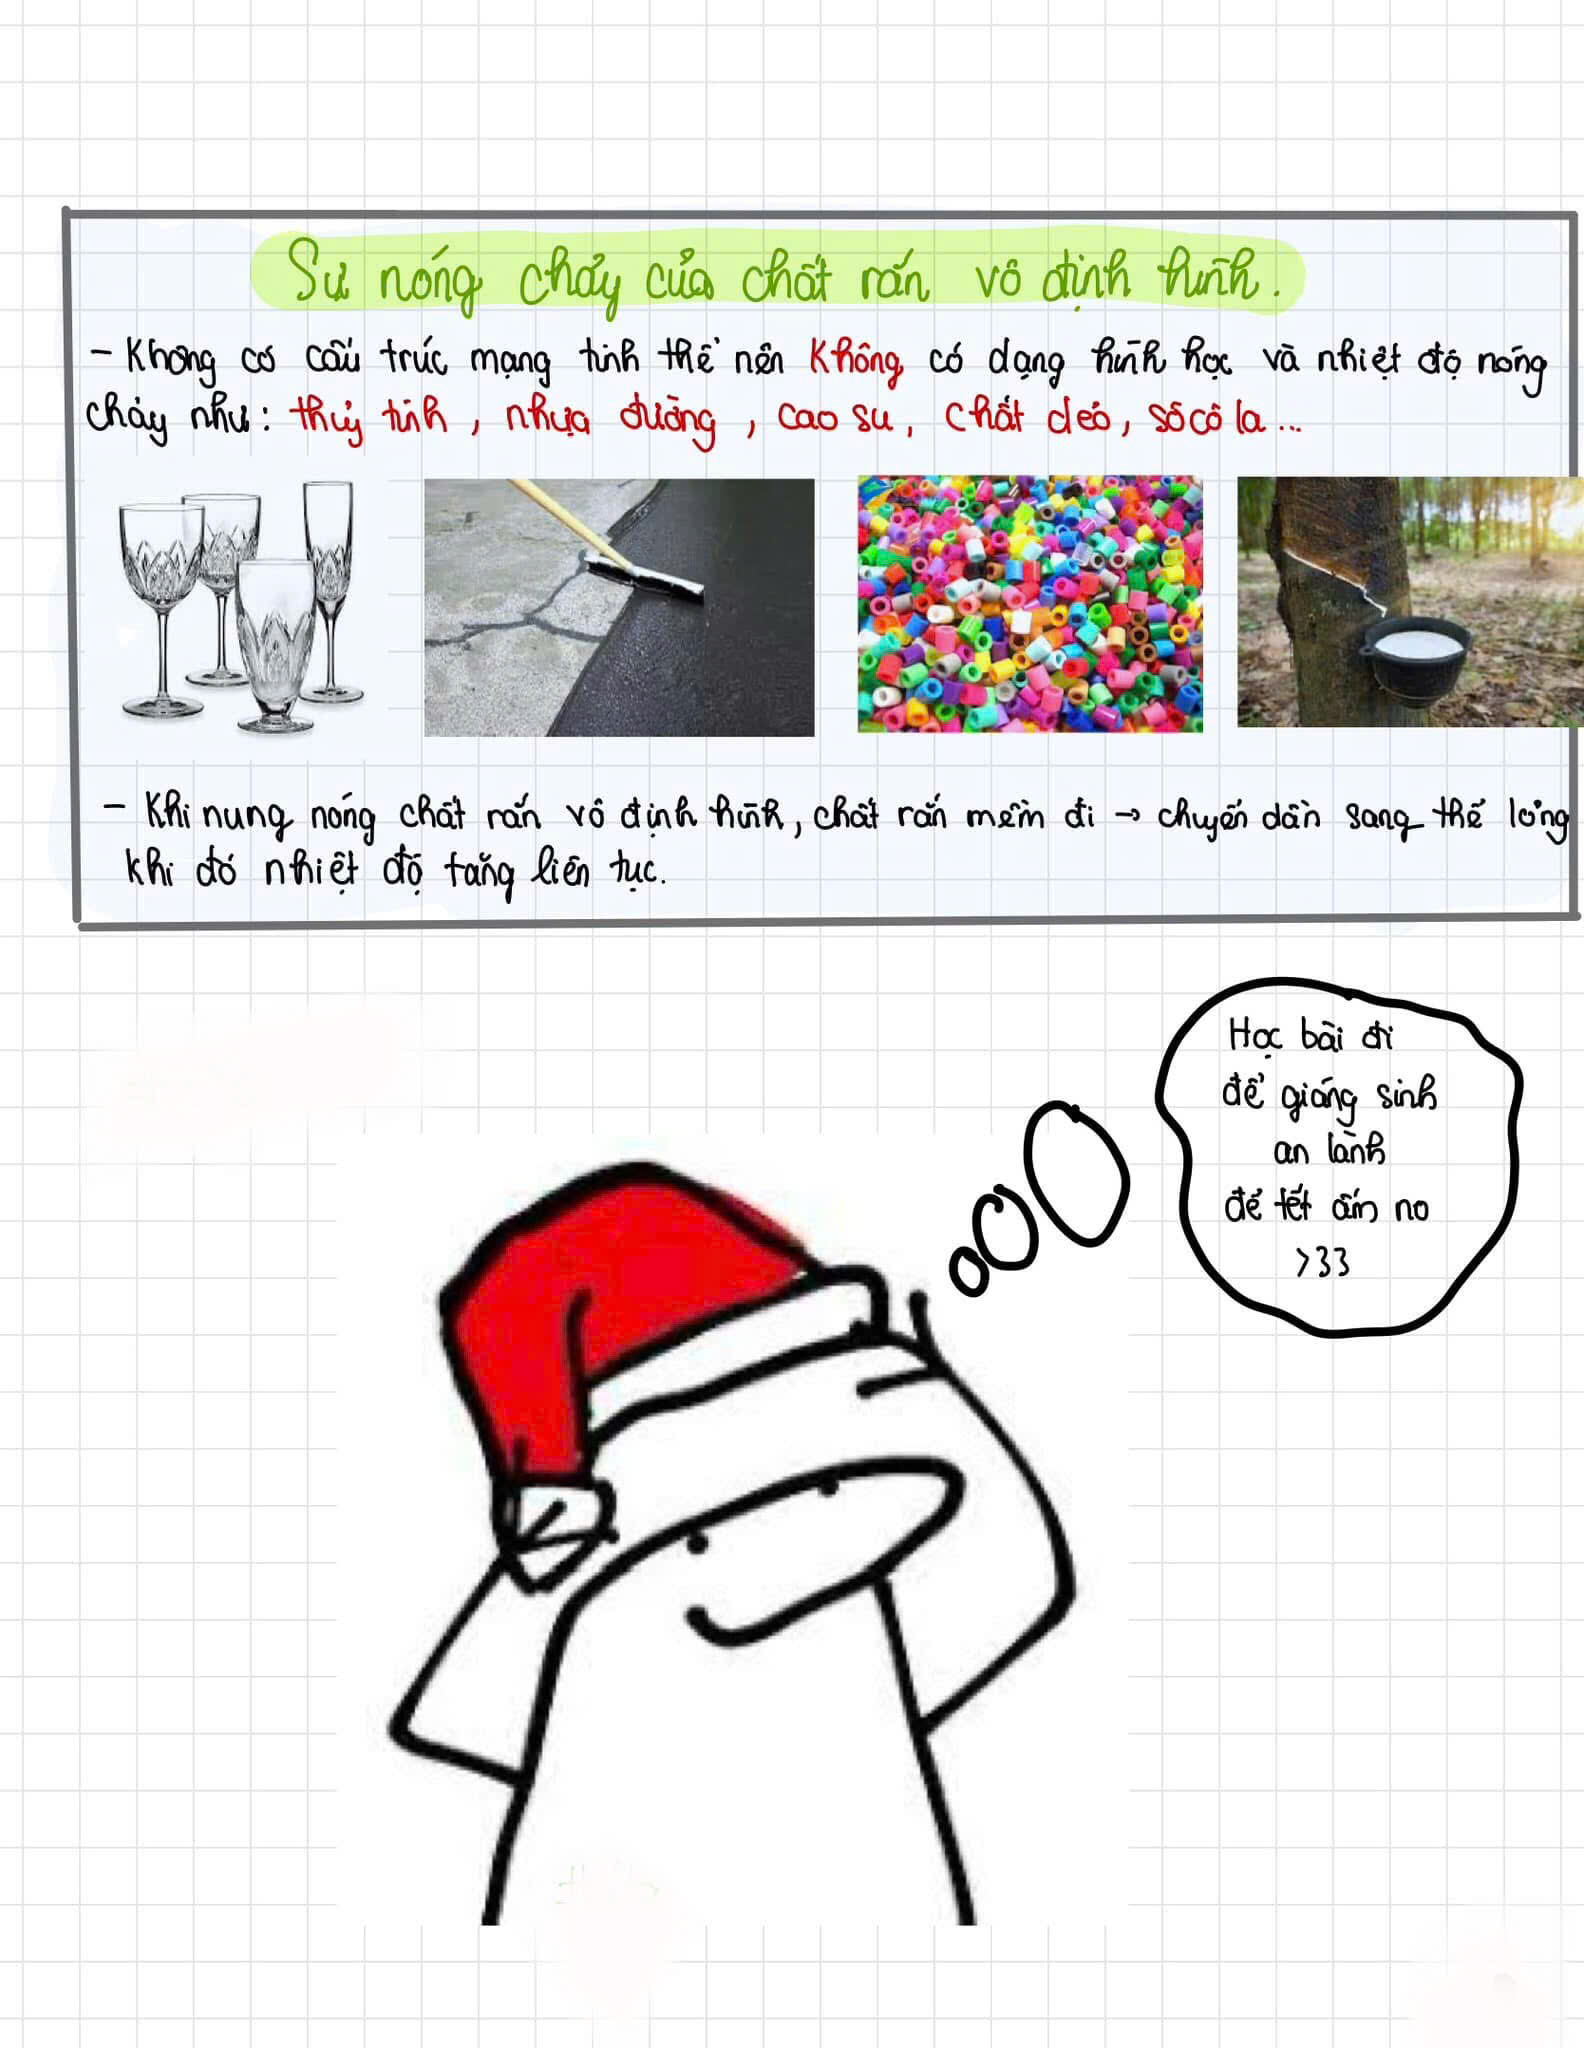 Sự nóng chảy của chất rắn vô định hình.
- Không có cấu trúc mạng tinh thể nên không có dạng hình học và nhiệt độ nóng
chảy như: thủy tinh, nhựa đường, cao su, chất dẻo, sôcôla...
- Khi nung nóng chất rắn vô định hình, chất rắn mềm đi → chuyển dần sang thể lỏng
khi đó nhiệt độ tăng liên tục.
Học bài đi
để giáng sinh
an lành
để tết ấm no
>33